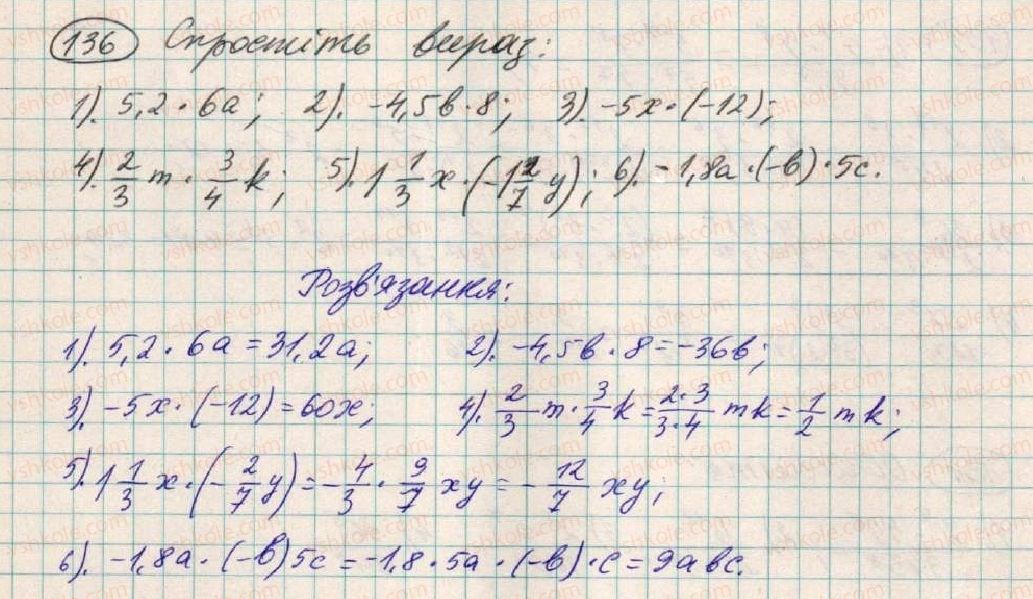 136 Спростіть вираз:
1). 5,2 · 6a; 2). -4,5в · 8; 3). -5x · (-12);
4). 2/3 m · 3/4 k; 5). 1 1/3 x · (-1 2/7 y); 6). -1,8a · (-в) · 5c.
Розв'язання:
1). 5,2 · 6a = 31,2a; 2). -4,5в · 8 = -36в;
3). -5x · (-12) = 60x; 4). 2/3 m · 3/4 k = 2·3/3·4 mk = 1/2 mk;
5). 1 1/3 x · (-2/7 y) = -4/3 · 9/7 xy = -12/7 xy;
6). -1,8a · (-в) 5c = -1,8 · 5a · (-в) · c = 9aвc.